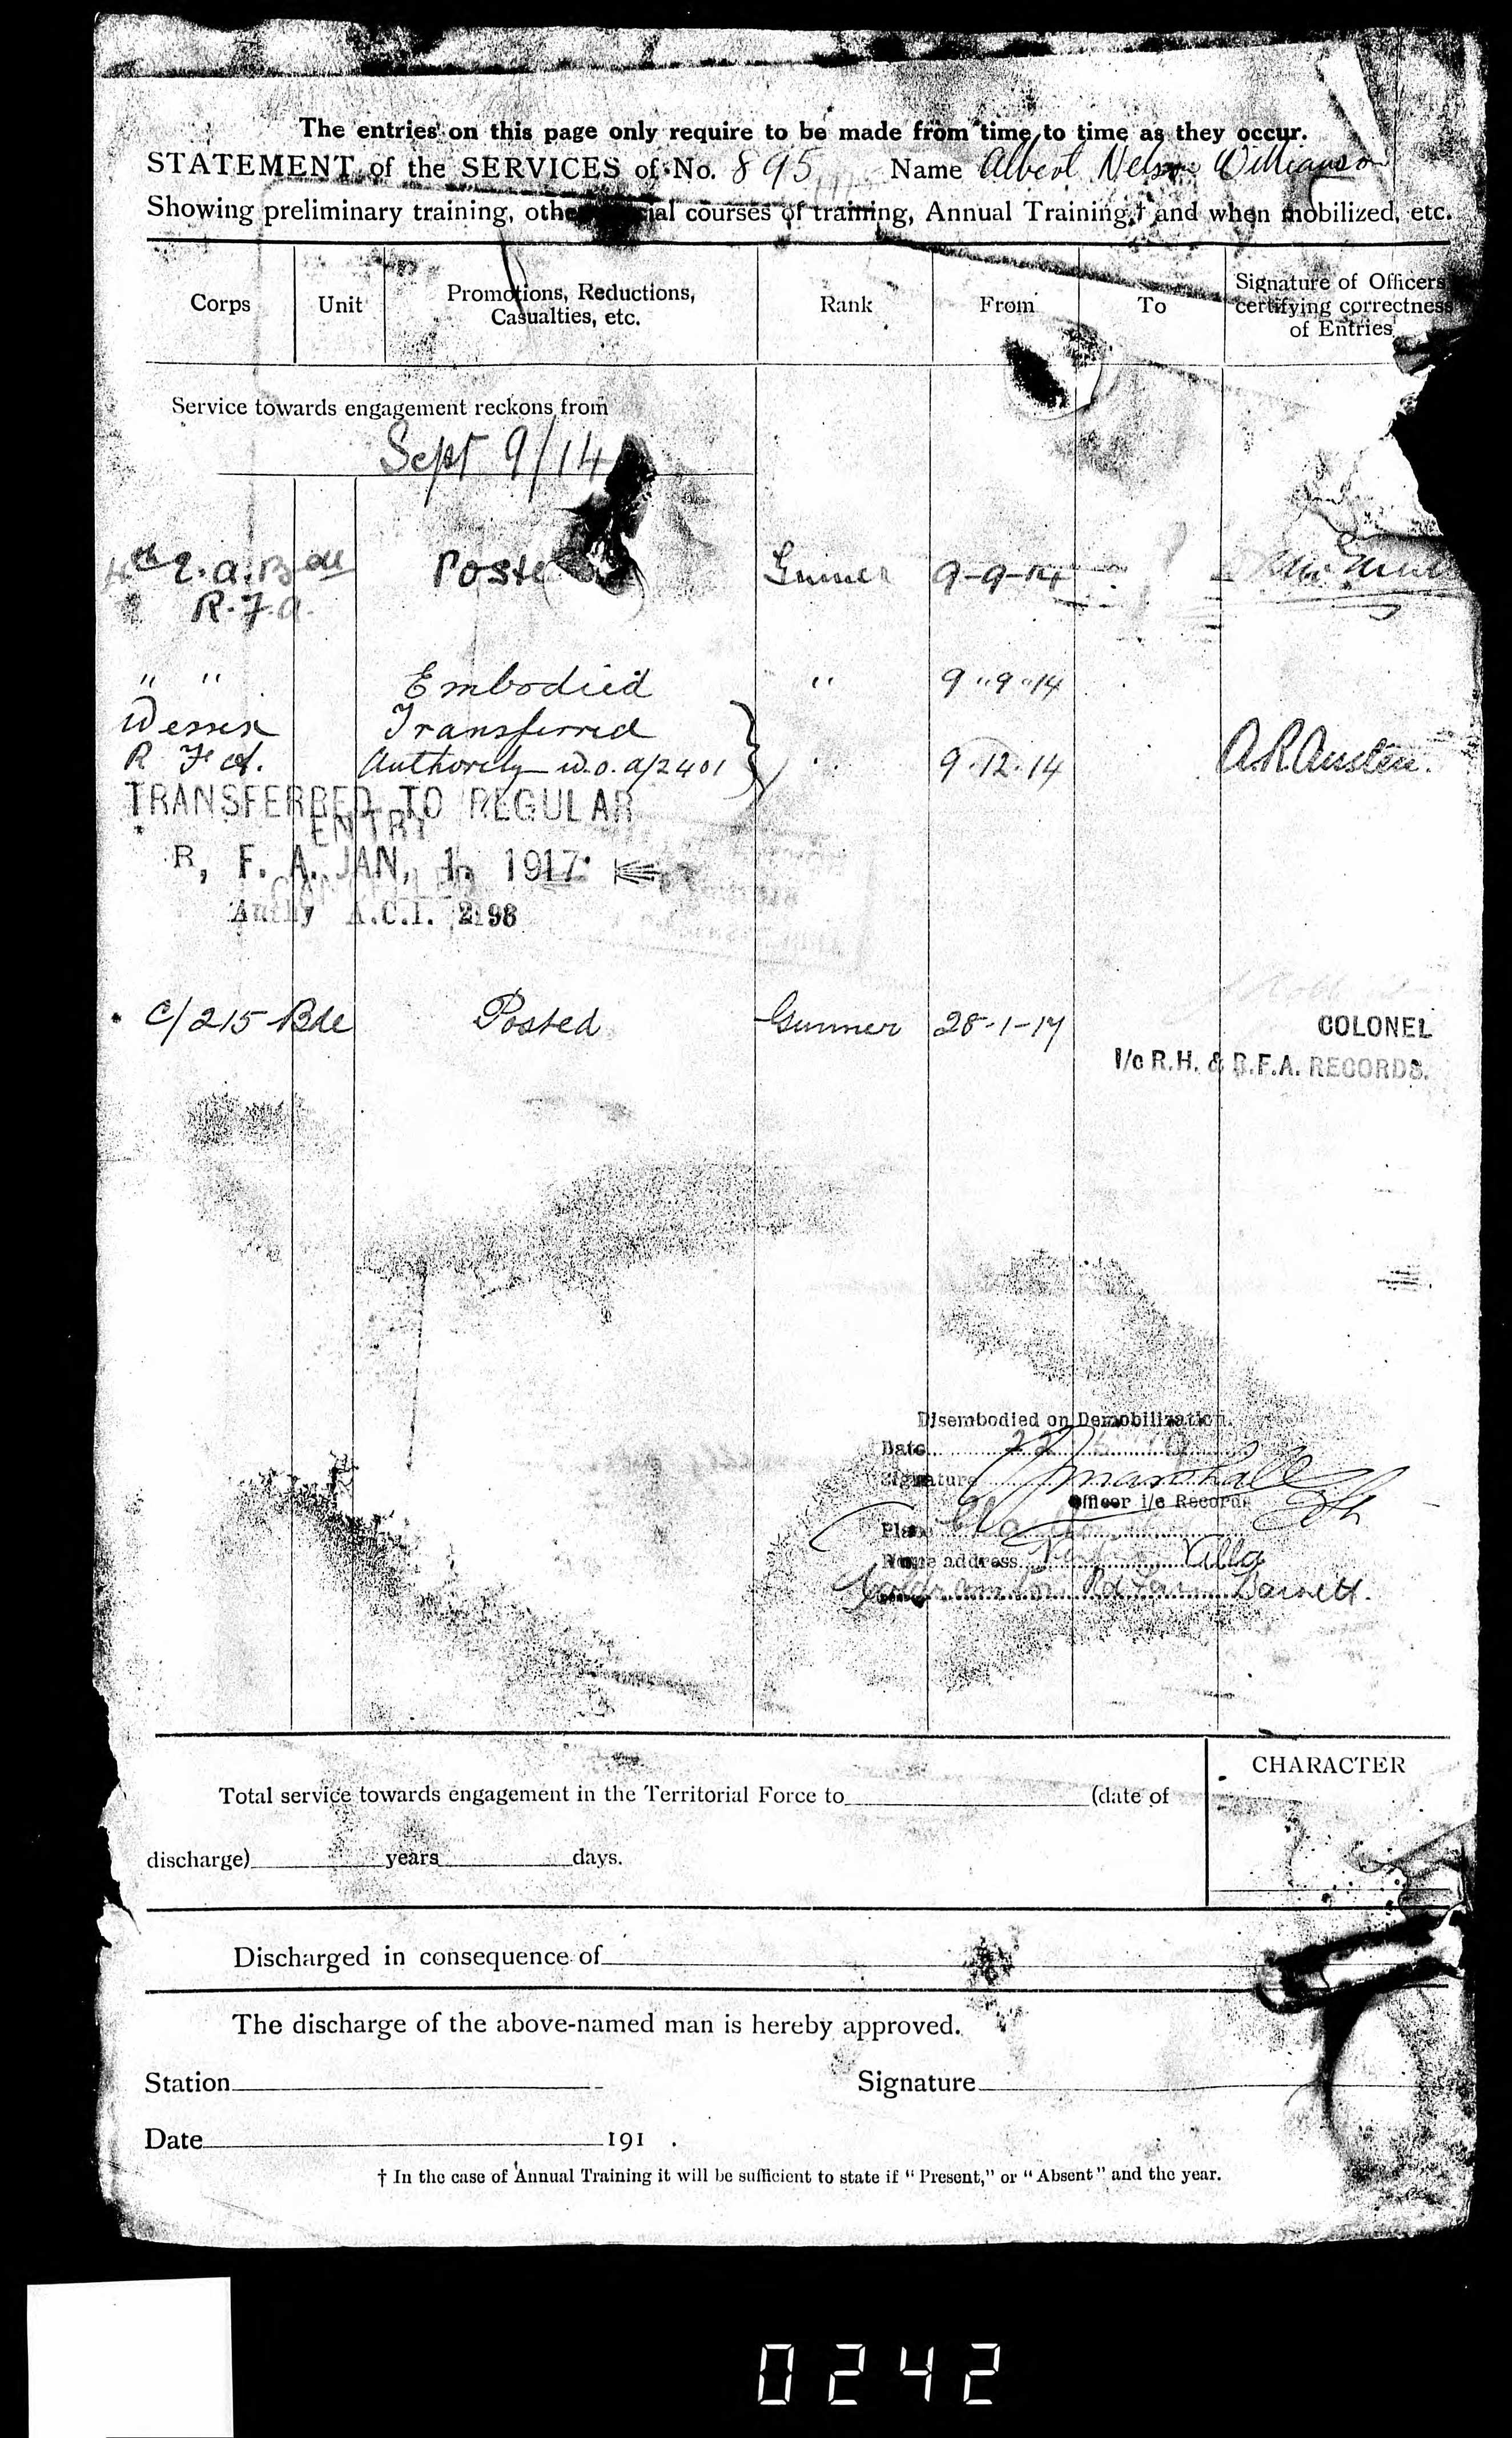 The entries on this page only require to be made from time to time as they occur.
STATEMENT of the SERVICES of No. 895 Name Albert Nelson Williamson
Showing preliminary training, other special courses of training, Annual Training,† and when mobilized, etc.
Corps Unit Promotions, Reductions, Casualties, etc. Rank From To Signature of Officers certifying correctness of Entries
Service towards engagement reckons from
Sept 9/14
4th L.a. Bde Poste Gunner 9-9-14
R.F.a.
" " Embodied " 9"9"14
Wessex Transferred
R F A. Authority W.O. a/2401 " 9.12.14 A.R. Austen.
TRANSFERRED TO REGULAR
ENTRY
R, F. A. JAN, 1. 1917.
CANCELLED
Authy A.C.I. 2198
C/215 Bde Posted Gunner 28-1-17
COLONEL
I/c R.H. & R.F.A. RECORDS.
Disembodied on Demobilization.
Date 22
Signature Marshall
Officer i/c Records
Place
Home address Villa
Rd Barnett.
CHARACTER
Total service towards engagement in the Territorial Force to (date of
discharge) years days.
Discharged in consequence of
The discharge of the above-named man is hereby approved.
Station Signature
Date 191 .
† In the case of Annual Training it will be sufficient to state if "Present," or "Absent" and the year.
0242